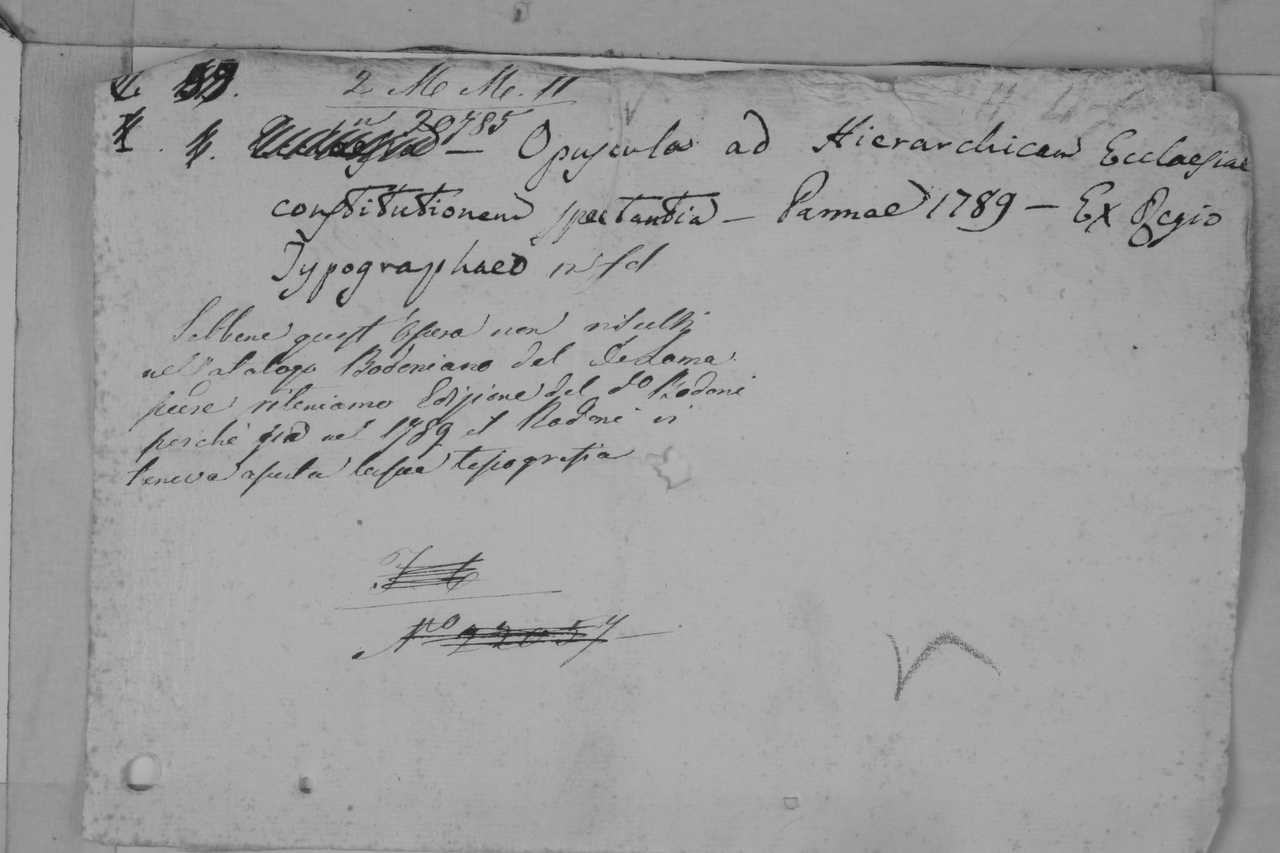 2 M. M. 11
n. 20785
— Opuscula ad Hierarchicam Ecclaesiae
constitutionem spectantia — Parmae 1789 — Ex Regio
Typographaeo in fol
Sebbene quest'Opera non risulti
nel Catalogo Bodoniano del De Lama
pure riteniamo Edizione del do Bodoni
perchè già nel 1789 il Bodoni vi
teneva aperta la sua tipografia
No 22057